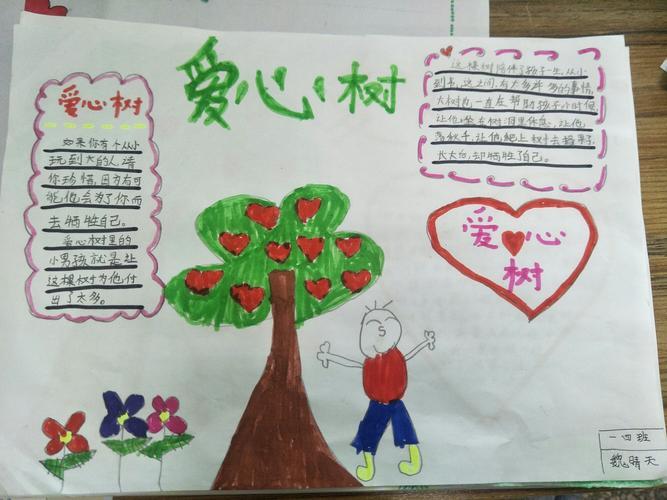 爱心树
爱心树
如果你有个从小
玩到大的人,请
你珍惜,因为有可
能他会为了你而
去牺牲自己。
爱心树里的
小男孩就是让
这棵树为他付
出了太多。
这棵树陪伴了孩子一生,从小
到老,这之间,有太多年多的事情,
大树也一直在帮助孩子小时候
让他坐在树洞里休息,让他
荡秋千,让他爬上树去摘果子,
长大后,却牺牲了自己。
爱心
树
一四班
魏晴天